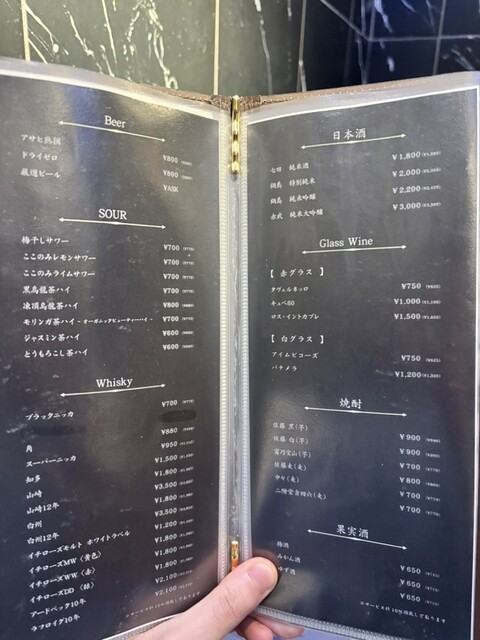 Beer
アサヒ熟撰 ¥800
ドライゼロ ¥800
厳選ビール ¥ASK
SOUR
梅干しサワー ¥700
ここのみレモンサワー ¥700
ここのみライムサワー ¥700
黒烏龍茶ハイ ¥700
凍頂烏龍茶ハイ ¥800
モリンガ茶ハイ - オーガニックビューティーハイ - ¥700
ジャスミン茶ハイ ¥600
とうもろこし茶ハイ ¥600
Whisky
ブラックニッカ ¥700
角 ¥880
スーパーニッカ ¥950
知多 ¥1,500
山崎 ¥1,800
山崎12年 ¥3,500
白州 ¥1,800
白州12年 ¥3,500
イチローズモルト ホワイトラベル ¥1,200
イチローズMW（黄色） ¥1,800
イチローズWW（赤） ¥1,800
イチローズDD（緑） ¥1,800
アードベック10年 ¥2,100
ラフロイグ10年 ¥2,100
※サービス料10%頂戴しております
日本酒
七田 純米酒 ¥1,800
鍋島 特別純米 ¥2,000
鍋島 純米吟醸 ¥2,200
赤武 純米大吟醸 ¥3,000
Glass Wine
【 赤グラス 】
タヴェルネッロ ¥750
キュペ60 ¥1,000
ロス・イントカブレ ¥1,500
【 白グラス 】
アイムピコーズ ¥750
パナメラ ¥1,200
焼酎
佐藤 黒(芋) ¥900
佐藤 白(芋) ¥900
富乃宝山(芋) ¥700
佐藤麦(麦) ¥800
中々(麦) ¥700
二階堂吉四六(麦) ¥700
果実酒
梅酒 ¥650
みかん酒 ¥650
ゆず酒 ¥650
※サービス料10%頂戴しております